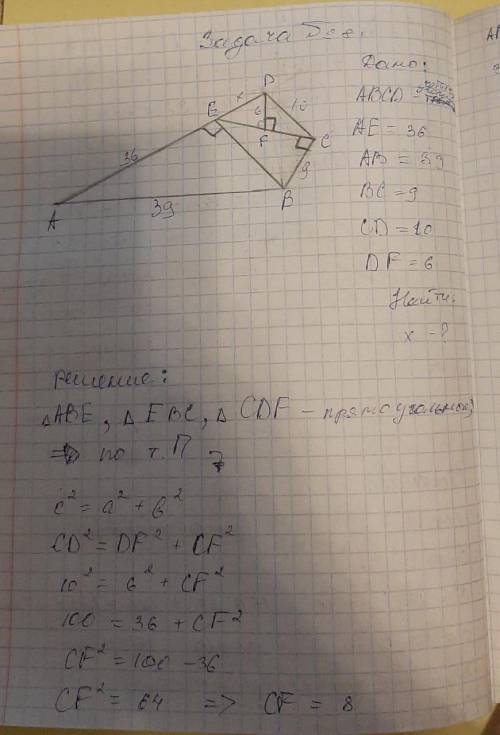 Задача
Дано:
ABCD -
AE = 36
AB = 39
BC = 9
CD = 10
DF = 6
Найти:
x - ?
D
E
x
6
10
F
C
36
9
A
39
B
Решение:
△ABE, △EBC, △CDF - прямоугольные
=> по т. П
c² = a² + b²
CD² = DF² + CF²
10² = 6² + CF²
100 = 36 + CF²
CF² = 100 - 36
CF² = 64 => CF = 8